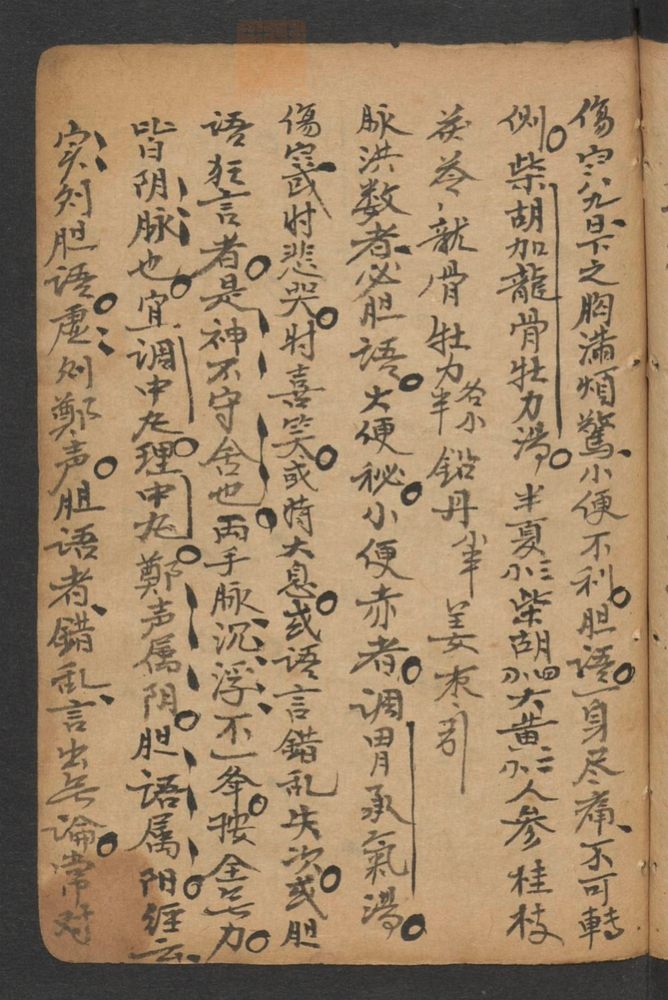 傷寒八九日下之胸滿煩驚小便不利胆語一身尽痛不可轉
側柴胡加龍骨牡力湯半夏小三柴胡小四大黃小二人參桂枝
茯苓龍骨牡力各小半鉛丹小半姜枣引
脉洪数者必胆語大便秘小便赤者调胃承氣湯
傷寒或时悲哭时喜笑或時大息或语言錯乱失次或胆
语狂言者是神不守舍也両手脉沉浮不一举按全无力
皆阴脉也宜调中丸理中丸鄭声属阴胆语属阳經云
实则胆语虚则鄭声胆语者錯乱言出无論常对